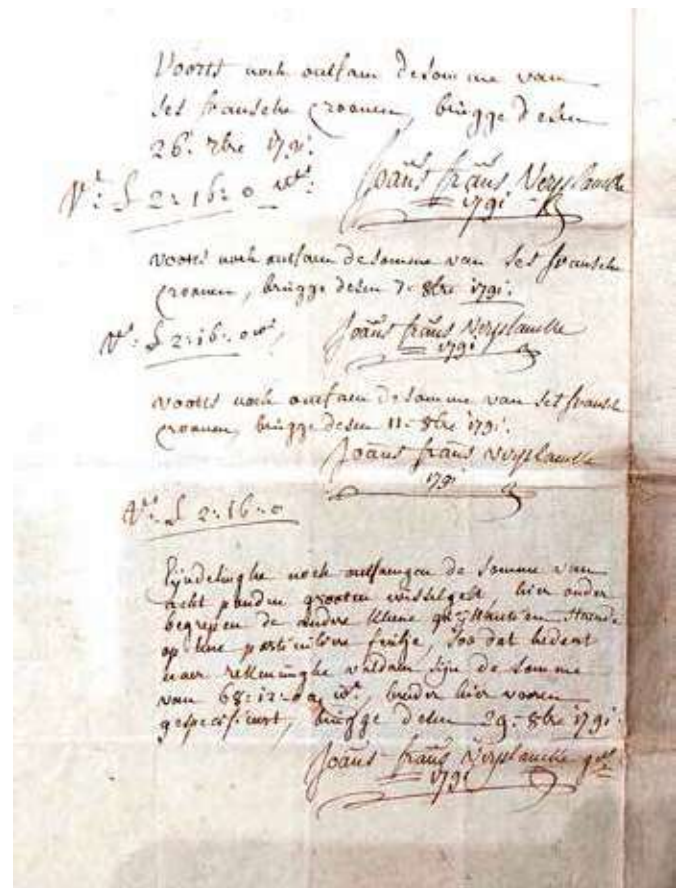 Voorts noch ontfaen de somme van
ses fransche croonen, brugge desen
26: 7bre 1791:
V: £ 2:16:0 wt:
Joans frans Verplancke
1791
voorts noch ontfaen de somme van ses fransche
croonen, brugge desen 7: 8bre 1791:
V: £ 2:16:0 wt,
Joans frans Verplancke
1791
voorts noch ontfaen de somme van ses fransche
croonen, brugge desen 11: 8bre 1791:
Joans frans verplancke
1791
V: £ 2:16:0
Eyndelinghe noch ontfangen de somme van
acht ponden grooten wisselgelt, hier onder
begrepen de andere kleene
op eene particuliere soo dat hedent
naer rekeninghe voldaen sijn de somme
van 68:12:0 wt, breeder hier vooren
gespecifieert, brugge desen 29: 8bre 1791:
Joans frans Verplancke
1791